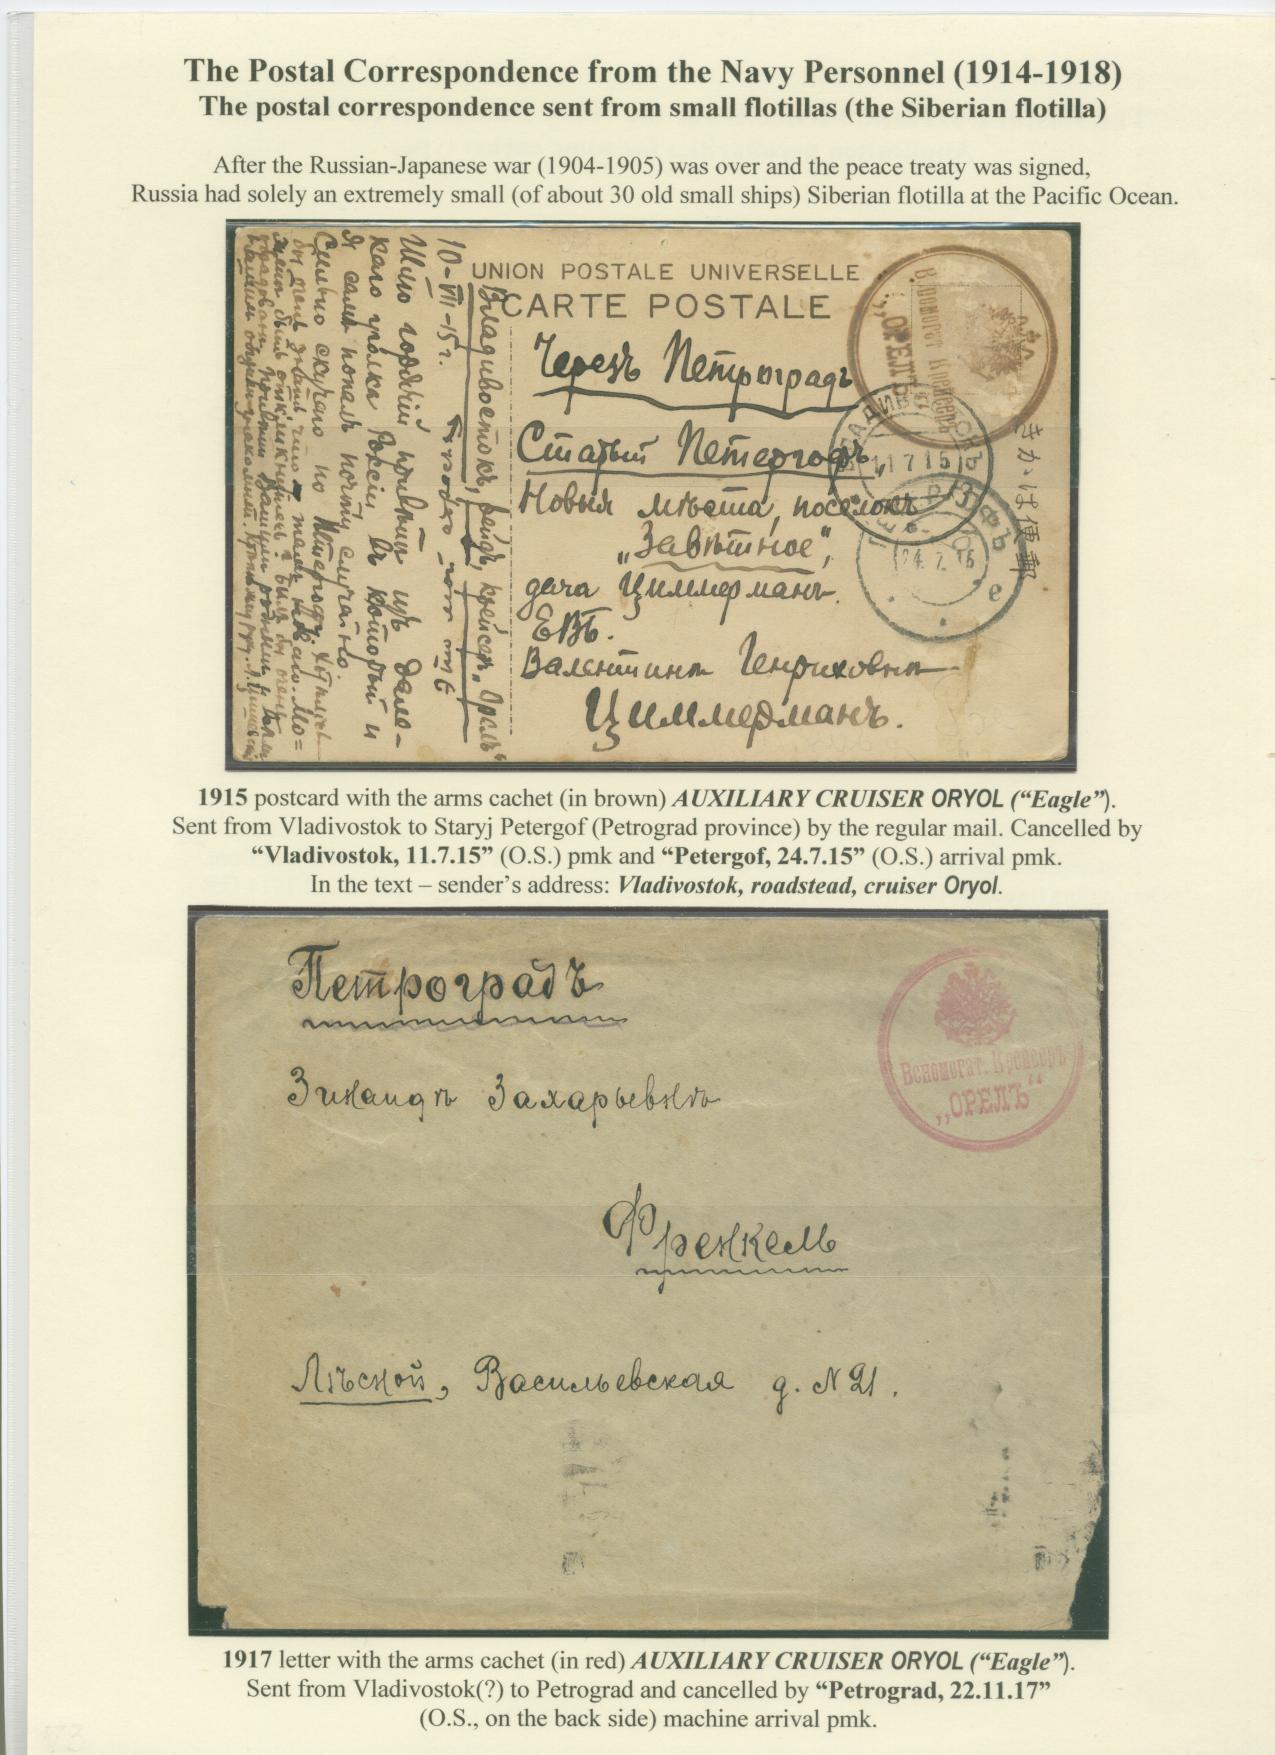 The Postal Correspondence from the Navy Personnel (1914-1918)
The postal correspondence sent from small flotillas (the Siberian flotilla)
After the Russian-Japanese war (1904-1905) was over and the peace treaty was signed,
Russia had solely an extremely small (of about 30 old small ships) Siberian flotilla at the Pacific Ocean.
UNION POSTALE UNIVERSELLE
CARTE POSTALE
Черезъ Петроградъ
Старый Петергофъ,
Новыя мѣста, поселокъ
„Завѣтное“,
дача Циммерманъ.
ЕВБ.
Валентина Генриховна
Циммерманъ.
Вспомогат. Крейсеръ
„ОРЕЛЪ“
ВЛАДИВОСТОКЪ
11 7 15
24. 7. 15
е
きかは便郵
Владивостокъ, рейдъ, крейсеръ „Орелъ“
10-VII-15 г.
Шлю горячій привѣтъ изъ дале-
каго уголка Россіи въ который и
я самъ попалъ почти случайно.
Сильно скучаю по Петергофу,
1915 postcard with the arms cachet (in brown) AUXILIARY CRUISER ORYOL (“Eagle”).
Sent from Vladivostok to Staryj Petergof (Petrograd province) by the regular mail. Cancelled by
“Vladivostok, 11.7.15” (O.S.) pmk and “Petergof, 24.7.15” (O.S.) arrival pmk.
In the text – sender’s address: Vladivostok, roadstead, cruiser Oryol.
Петроградъ
Зинаидѣ Захарьевнѣ
Френкель
Лѣсной, Васильевская д. № 21.
Вспомогат. Крейсеръ
„ОРЕЛЪ“
1917 letter with the arms cachet (in red) AUXILIARY CRUISER ORYOL (“Eagle”).
Sent from Vladivostok(?) to Petrograd and cancelled by “Petrograd, 22.11.17”
(O.S., on the back side) machine arrival pmk.
73